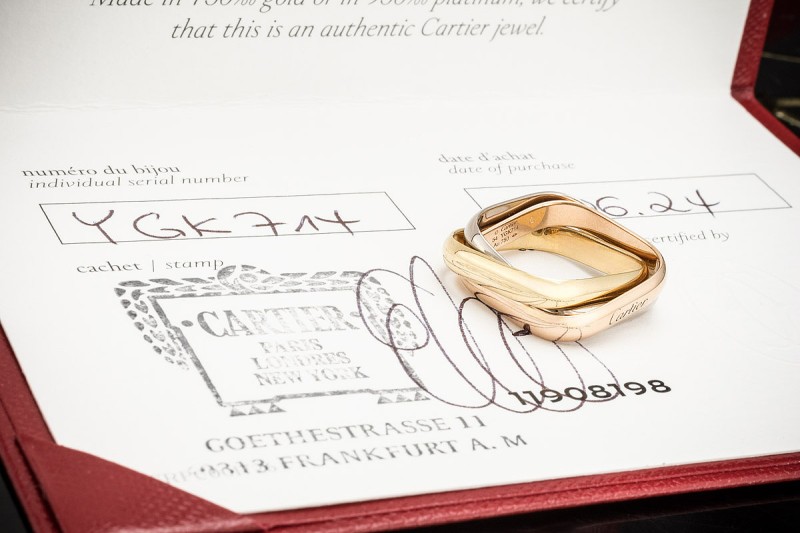 Made in 750‰ gold or in 950‰ platinum, we certify
that this is an authentic Cartier jewel.
numéro du bijou
individual serial number
YGK714
date d'achat
date of purchase
6.24
certified by
cachet | stamp
CARTIER
PARIS
LONDRES
NEW YORK
GOETHESTRASSE 11
FRANKFURT A. M
11908198
Cartier